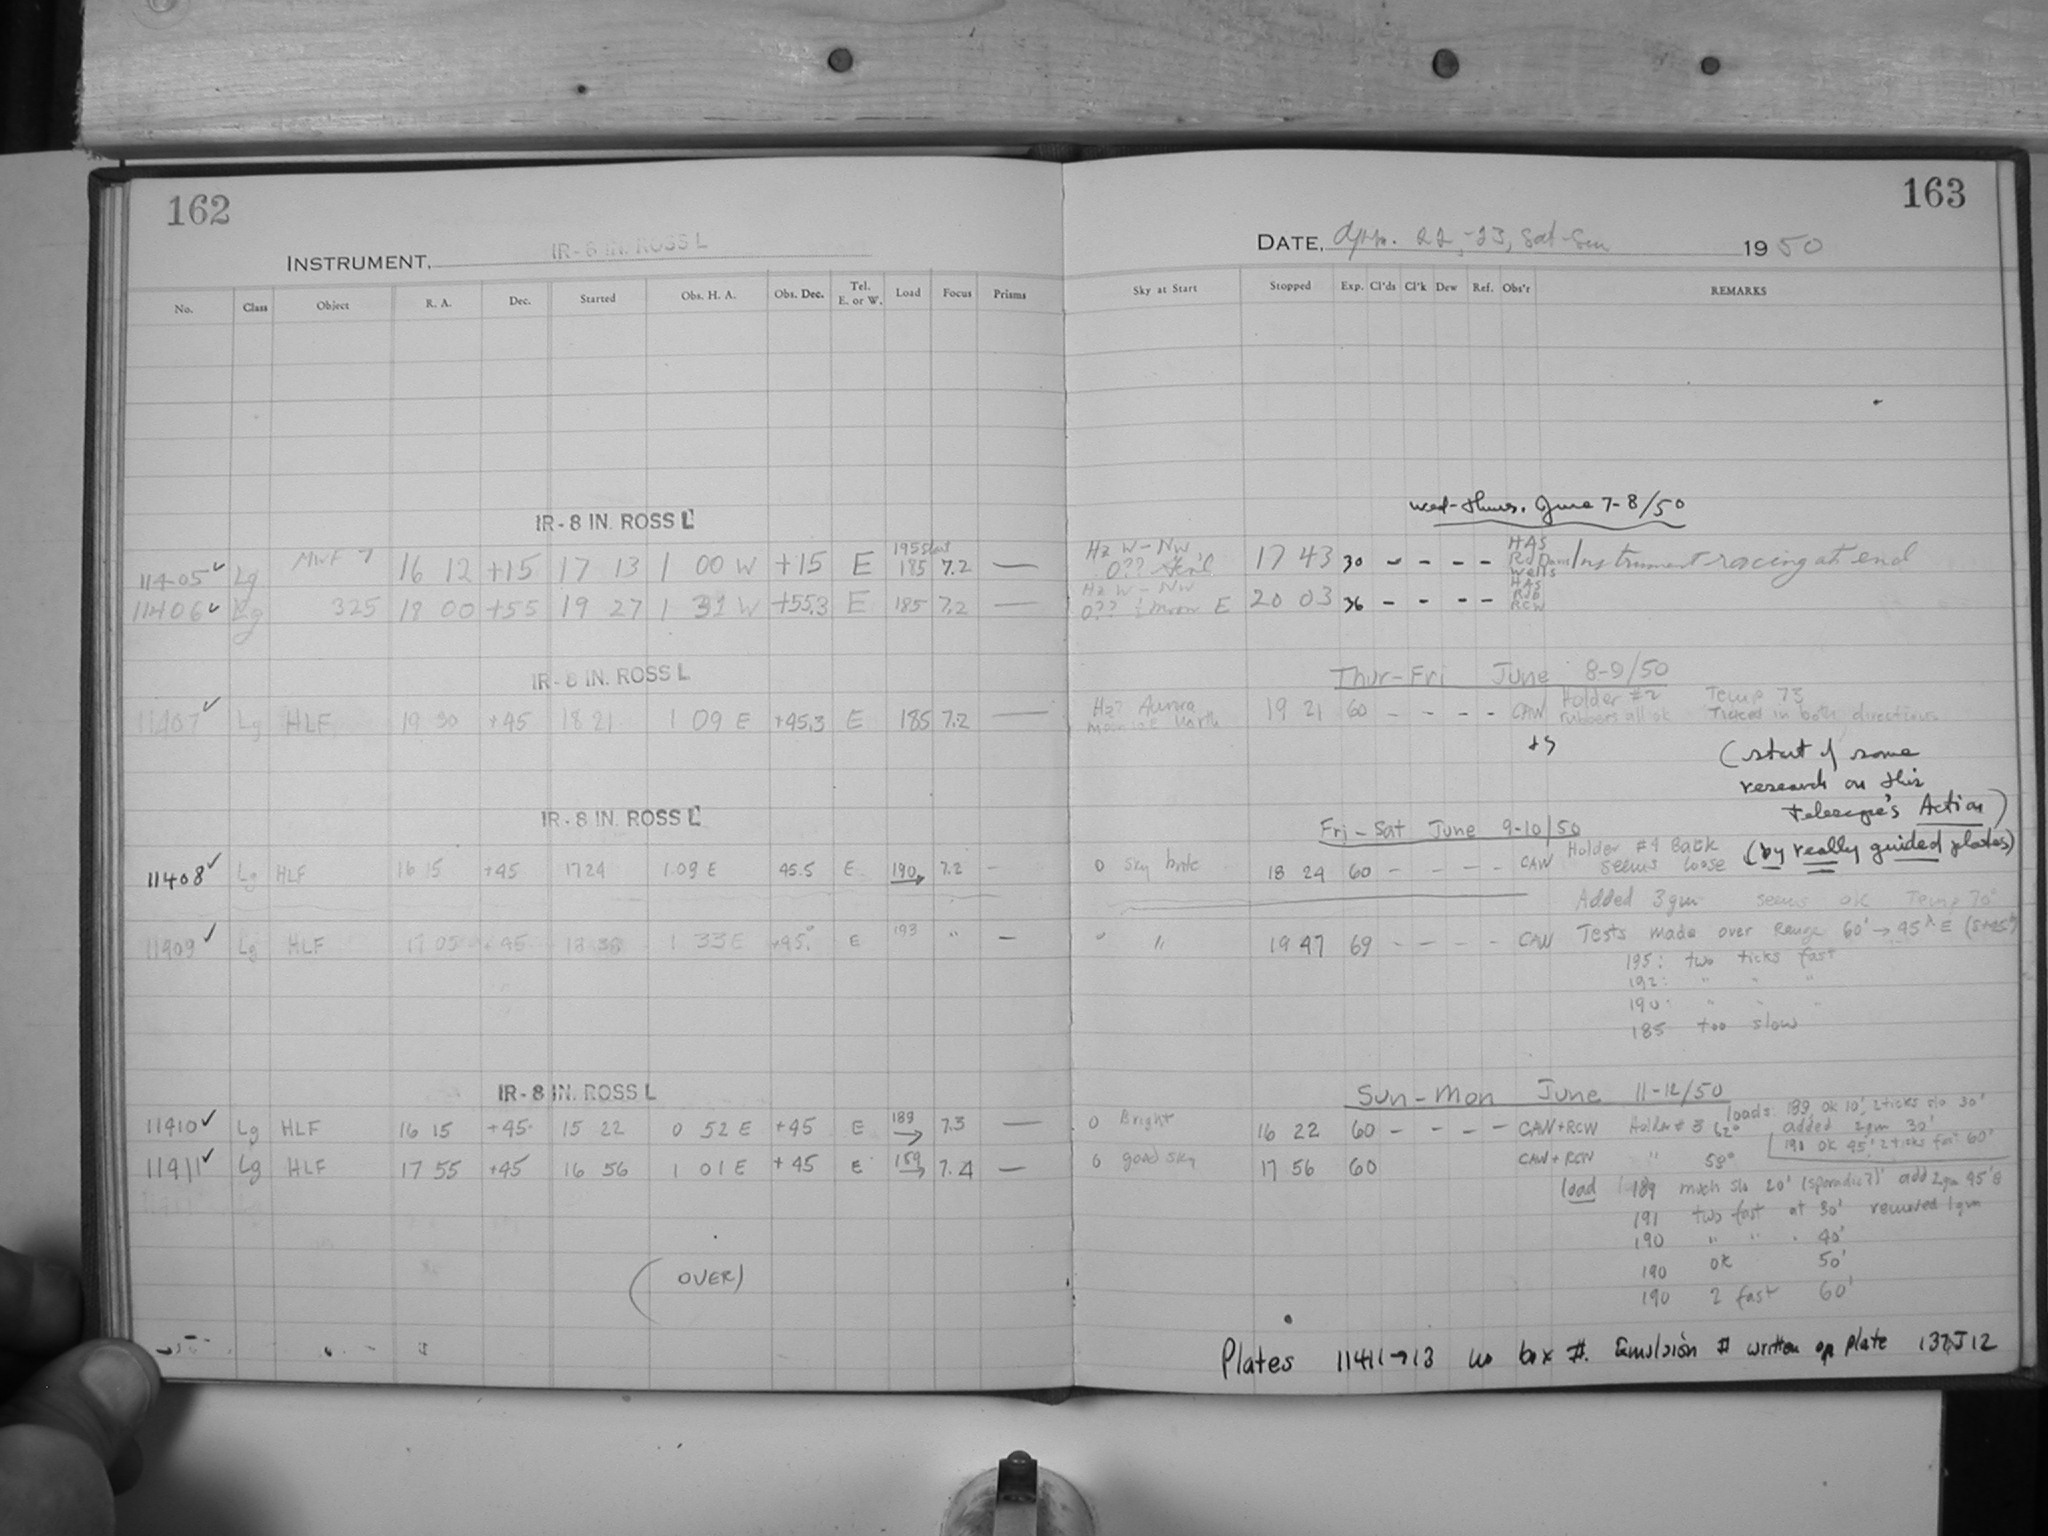 162
INSTRUMENT, IR-8 IN. ROSS L
No. Class Object R. A. Dec. Started Obs. H. A. Obs. Dec. Tel. E. or W. Load Focus Prisms
IR-8 IN. ROSS L
11405 ✓ Lg MWF 7 16 12 +15 17 13 1 00 W +15 E 185 7.2 —
11406 ✓ Lg 325 18 00 +55 19 27 1 31 W +55.3 E 185 7.2 —
IR-8 IN. ROSS L
11407 ✓ Lg HLF 19 30 +45 18 21 1 09 E +45.3 E 185 7.2 —
IR-8 IN. ROSS L
11408 ✓ Lg HLF 16 15 +45 17 24 1 09 E 45.5 E 190 7.2 —
11409 ✓ Lg HLF 17 05 +45 18 38 1 33 E +45° E 193 " —
IR-8 IN. ROSS L
11410 ✓ Lg HLF 16 15 +45 15 22 0 52 E +45 E 189 7.3 —
11411 ✓ Lg HLF 17 55 +45 16 56 1 01 E +45 E 189 7.4 —
(OVER)
163
DATE, Apr. 22-23, Sat-Sun 1950
Sky at Start Stopped Exp. Cl'ds Cl'k Dew Ref. Obs'r REMARKS
Wed-Thurs. June 7-8/50
Hz W-NW
0?? 17 43 30 - - - - HAS Wells Instrument racing at end
Hz W-NW
0?? moon E 20 03 36 - - - - HAS RCW
Thur-Fri June 8-9/50
Hz? Aurora North 19 21 60 - - - - CAW Holder #2 Temp 73
rubbers all ok Traced in both directions
(start of some
research on this
Telescope's Action)
(by really guided plates)
Fri-Sat June 9-10/50
0 sky brite 18 24 60 - - - - CAW Holder #4 Back
seems loose
Added 3gm seems ok Temp 70°
" " 19 47 69 - - - - CAW Tests made over Range 60' → 45' E
195: two ticks fast
192: " " "
190: " " "
185 too slow
Sun-Mon June 11-12/50
0 Bright 16 22 60 - - - - CAW+RCW Holder #3 62°
loads: 189 ok 10', 2 ticks slo 30'
added 2gm 30'
190 ok 45', 2 ticks fast 60'
0 good sky 17 56 60 CAW+RCW " 58°
load 189 much slo 20' (sporadic?) add 2gm
191 two fast at 30' removed 1gm
190 " " . 40'
190 ok 50'
190 2 fast 60'
Plates 11411→13 no box #. Emulsion # written on plate 137J12